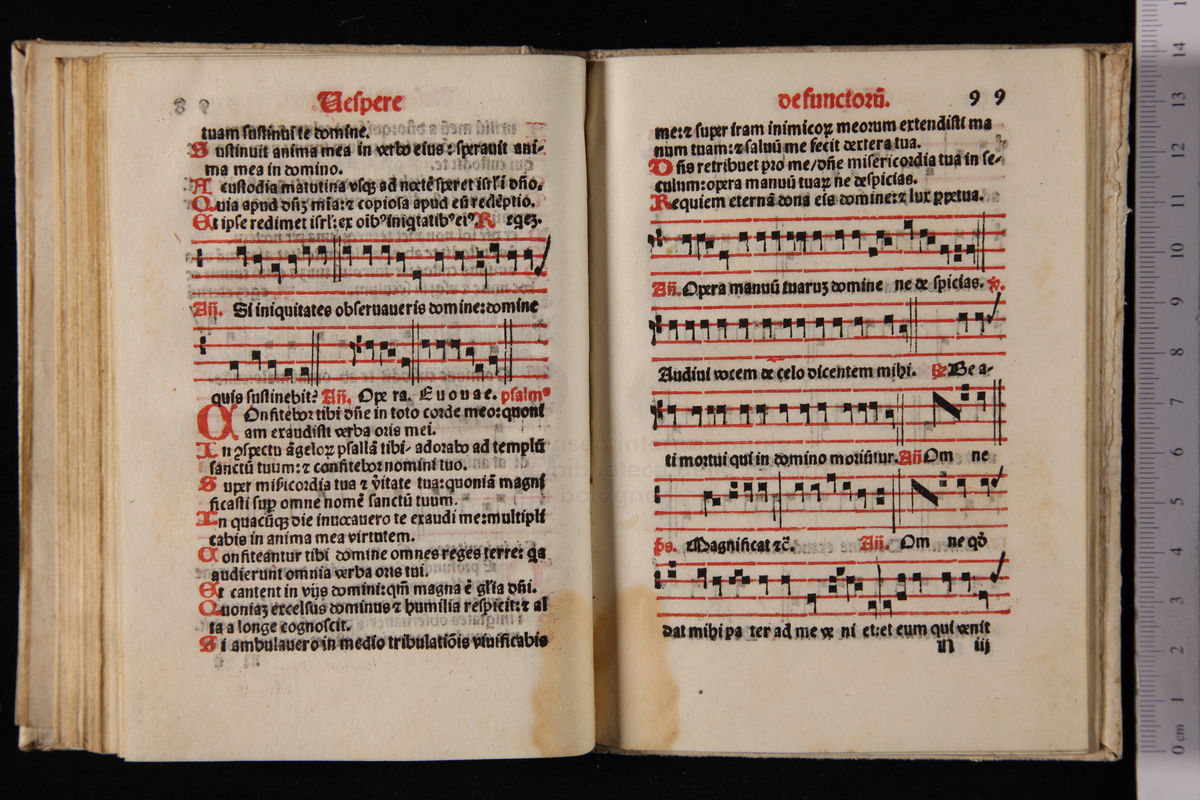 Uespere
tuam sustinui te domine.
Sustinuit anima mea in verbo eius: sperauit ani-
ma mea in domino.
A custodia matutina vsqꝫ ad noctē speret isrl' i dño.
Quia apud dñꝫ mīa: ⁊ copiosa apud eū redēptio.
Et ipse redimet isrl: ex oibꝰ iniqtatibꝰ eiꝰ R eqeꝫ.
Añ. Si iniquitates obseruaueris domine: domine
quis sustinebit? Añ. Ope ra. Euouae. psalmꝰ
COnfitebor tibi dñe in toto corde meo: quoni
am exaudisti verba oris mei.
In ꝯspectu āgeloꝝ psallā tibi- adorabo ad templū
sanctū tuum: ⁊ confitebor nomini tuo.
Super misericordia tua ⁊ ṽitate tua: quoniā magni
ficasti sup omne nomē sanctū tuum.
In quacūqꝫ die inuocauero te exaudi me: multipli
cabis in anima mea virtutem.
Confiteantur tibi domine omnes reges terre: qa
audierunt omnia verba oris tui.
Et cantent in vijs domini: qm̄ magna ē gl'ia dñi.
Quoniaꝫ excelsus dominus ⁊ humilia respicit: ⁊ al
ta a longe cognoscit.
Si ambulauero in medio tribulatiōis viuificabis
defunctorū. 99
me: ⁊ super iram inimicoꝝ meorum extendisti ma
num tuam: ⁊ saluū me fecit dextera tua.
Dñs retribuet pro me/dñe misericordia tua in se-
culum: opera manuū tuaꝝ ne despicias.
Requiem eternā dona eis domine: ⁊ lux ꝑpetua.
Añ. Opera manuū tuaruꝫ domine ne de spicias. ℣.
Audiui vocem de celo dicentem mihi. ℟ Be a-
ti mortui qui in domino moriūtur. Añ Om ne
ps. Magnificat ⁊c̄. Añ. Om ne qđ
dat mihi pa ter ad me ve ni et: et eum qui venit
n iij